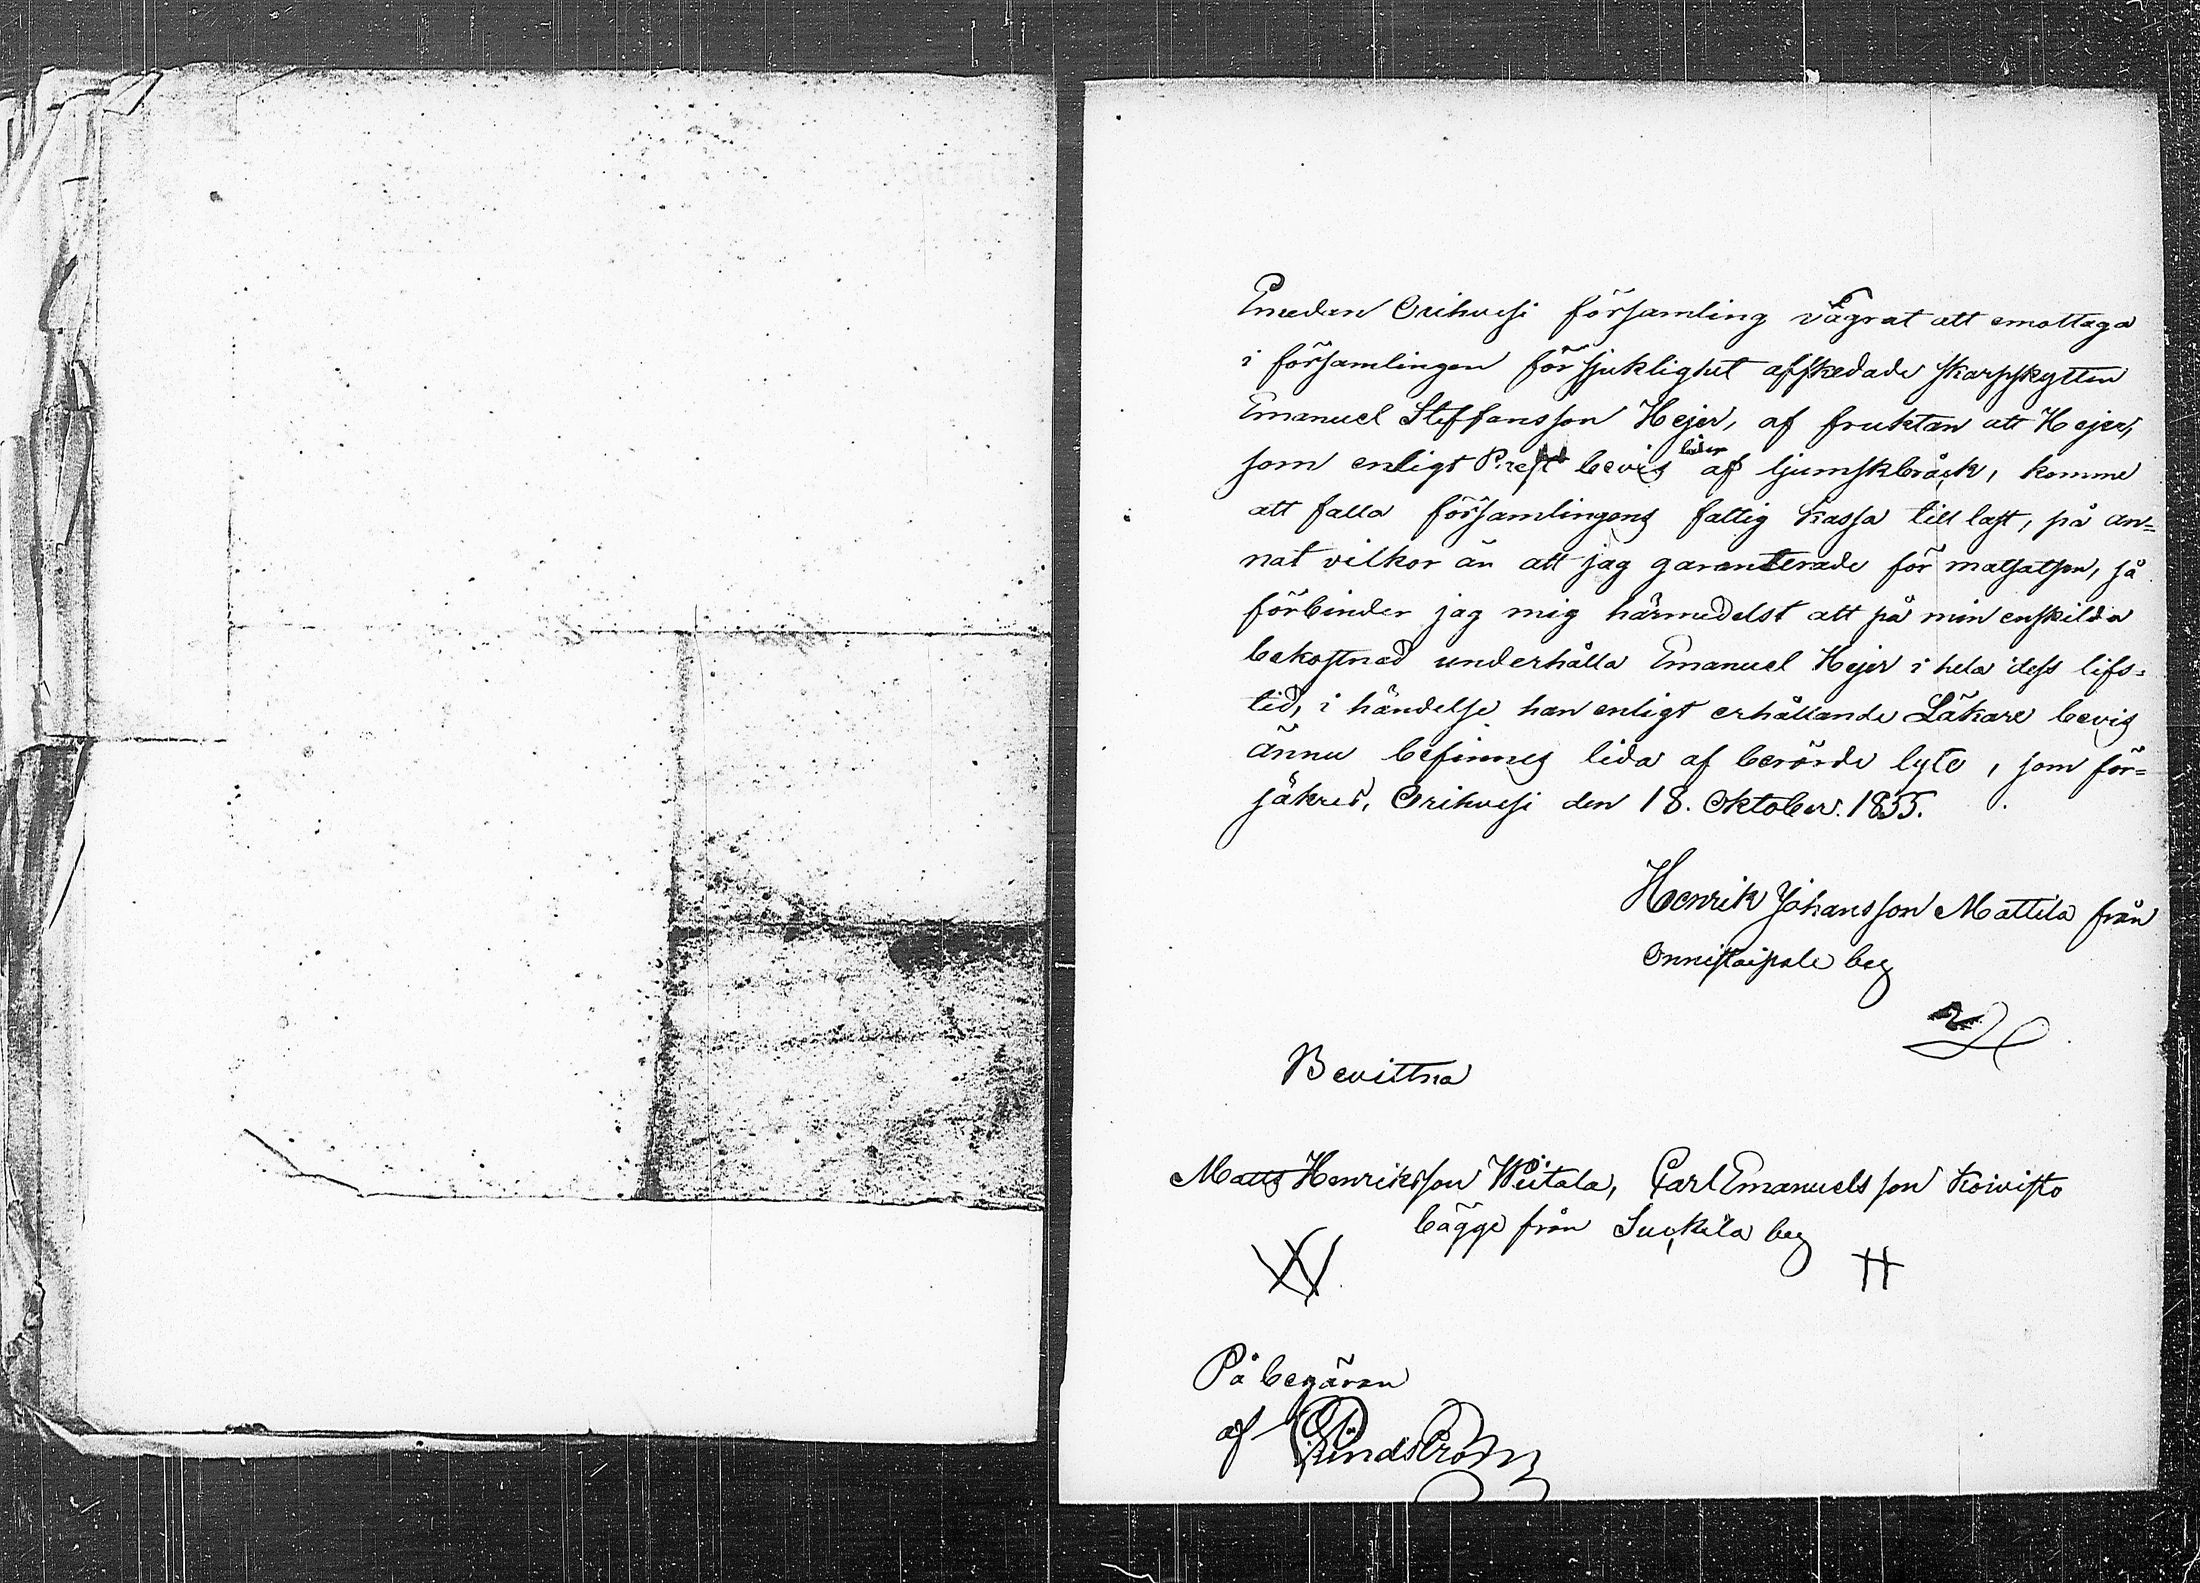 Emedan Orihvesi församling vägrat att emottaga
i församlingen för sjuklighet afskedade skarpskytten
Emanuel Steffansson Hejer, af fruktan att Hejer,
som enligt Prest bevis lider af ljumskbråck, komme
att falla församlingens fattig kassa till last, på an=
nat vilkor än att jag garanterade för motsatsen, så
förbinder jag mig härmedelst att på min enskilda
bekostnad underhålla Emanuel Hejer i hela dess lifs=
tid, i händelse han enligt erhållande Läkare bevis
ännu befinnes lida af berörde lyte, som för=
säkras, Orihvesi den 18. Oktober. 1855.
Henrik Johansson Mattila från
Onnistaipale by
Bevittna
Matts Henriksson Wiitala, Carl Emanuelsson Koivisto
bägge från Suckila by
På begäran
af Lindström